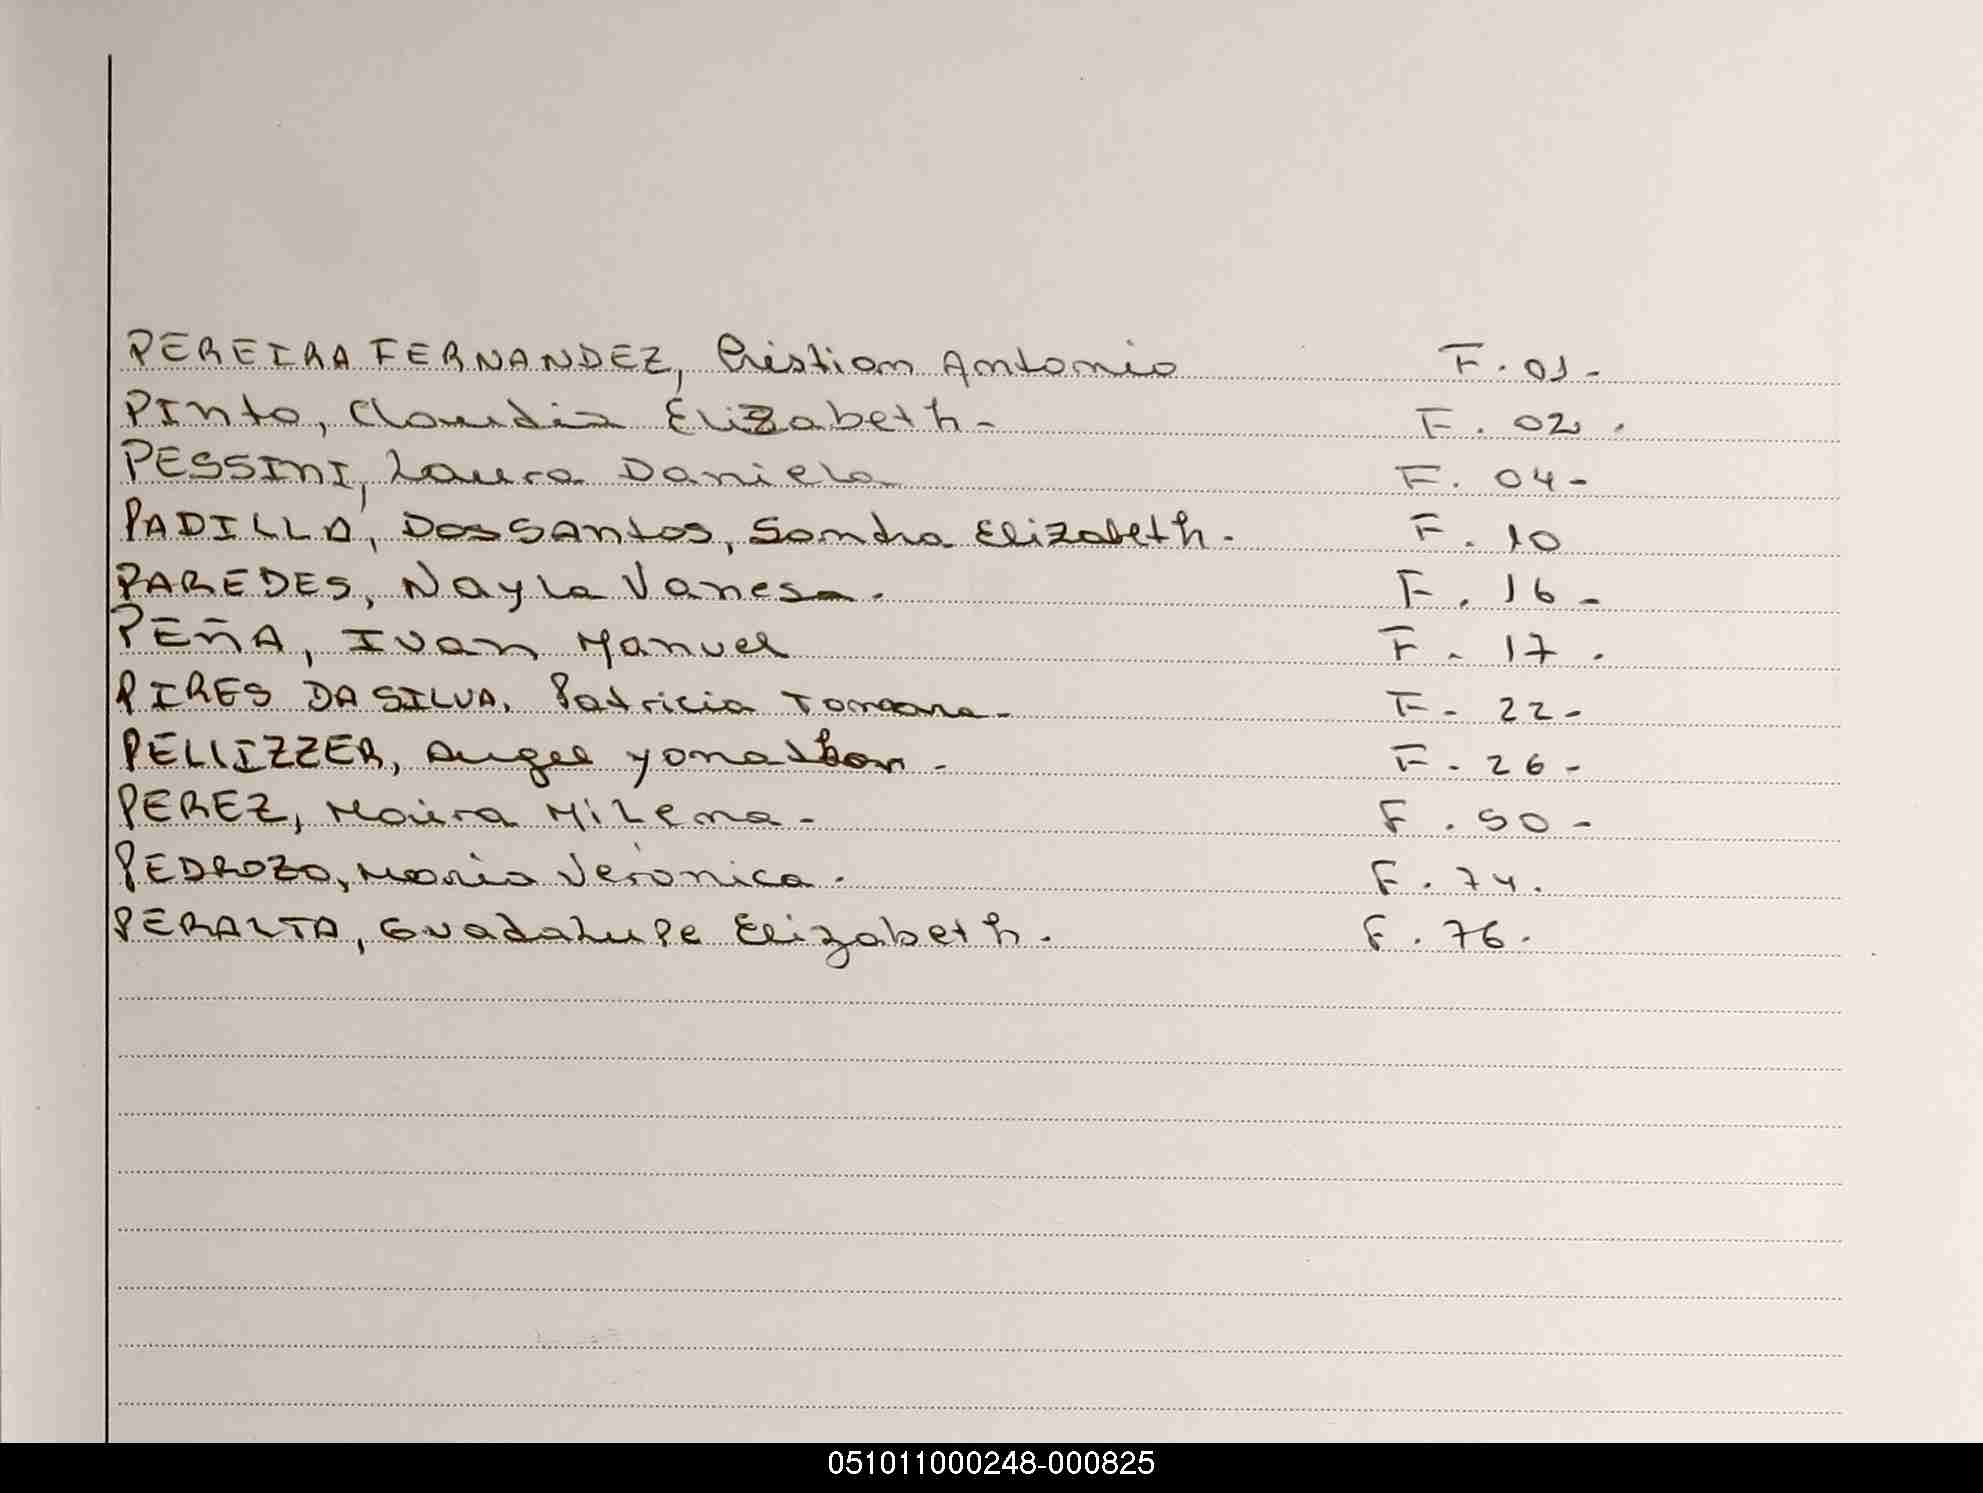 PEREIRA FERNANDEZ, Cristian Antonio F. 01-
PInto, Claudia Elizabeth- F. 02.
PESSINI, Laura Daniela F. 04-
PADILLA, Dos SAntos, Sandra Elizabeth. F. 10
PAREDES, Nayla Vanesa. F. 16-
PEÑA, Ivan Manuel F. 17.
PIRES DA SILVA, Patricia Tamara- F- 22-
PELLIZZER, Angel yonathan- F. 26-
PEREZ, Maira Milena- F. 50-
PEDROZO, Maria Veronica. F. 74.
PERALTA, Guadalupe Elizabeth. F. 76.
051011000248-000825